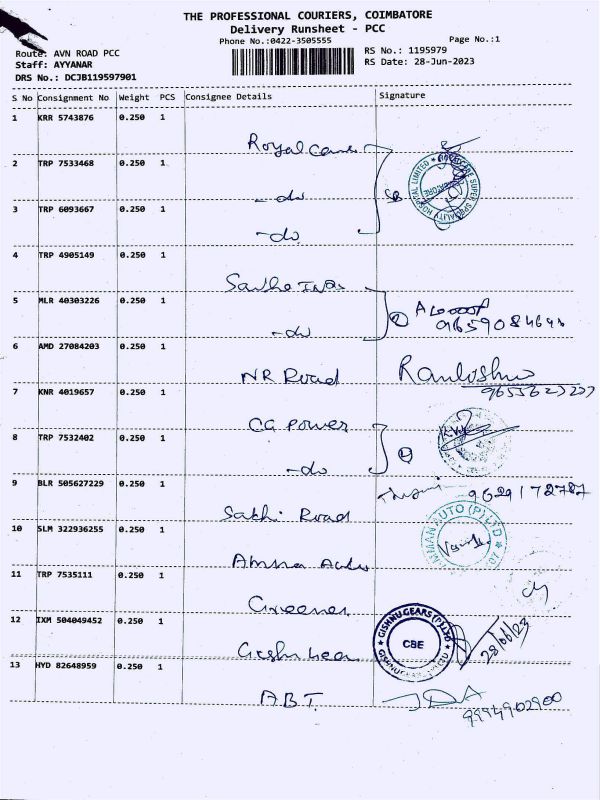 THE PROFESSIONAL COURIERS, COIMBATORE
Delivery Runsheet - PCC
Phone No.:0422-3505555
Page No.:1
Route: AVN ROAD PCC
RS No.: 1195979
Staff: AYYANAR
RS Date: 28-Jun-2023
DRS No.: DCJB119597901
S No Consignment No Weight PCS Consignee Details Signature
1 KRR 5743876 0.250 1
Royal Care
2 TRP 7533468 0.250 1
-do
3 TRP 6093667 0.250 1
-do
4 TRP 4905149 0.250 1
5 MLR 40303226 0.250 1
-do
6 AMD 27084203 0.250 1
NR Road
7 KNR 4019657 0.250 1
CG Power
8 TRP 7532402 0.250 1
-do
9 BLR 505627229 0.250 1
9629172787
Sakhi Road
10 SLM 322936255 0.250 1
AUTO (P) LTD
11 TRP 7535111 0.250 1
12 IXM 504049452 0.250 1
GISHNU GEARS (P) LTD
CBE
28/06/23
13 HYD 82648959 0.250 1
A.B.T.
9994902900